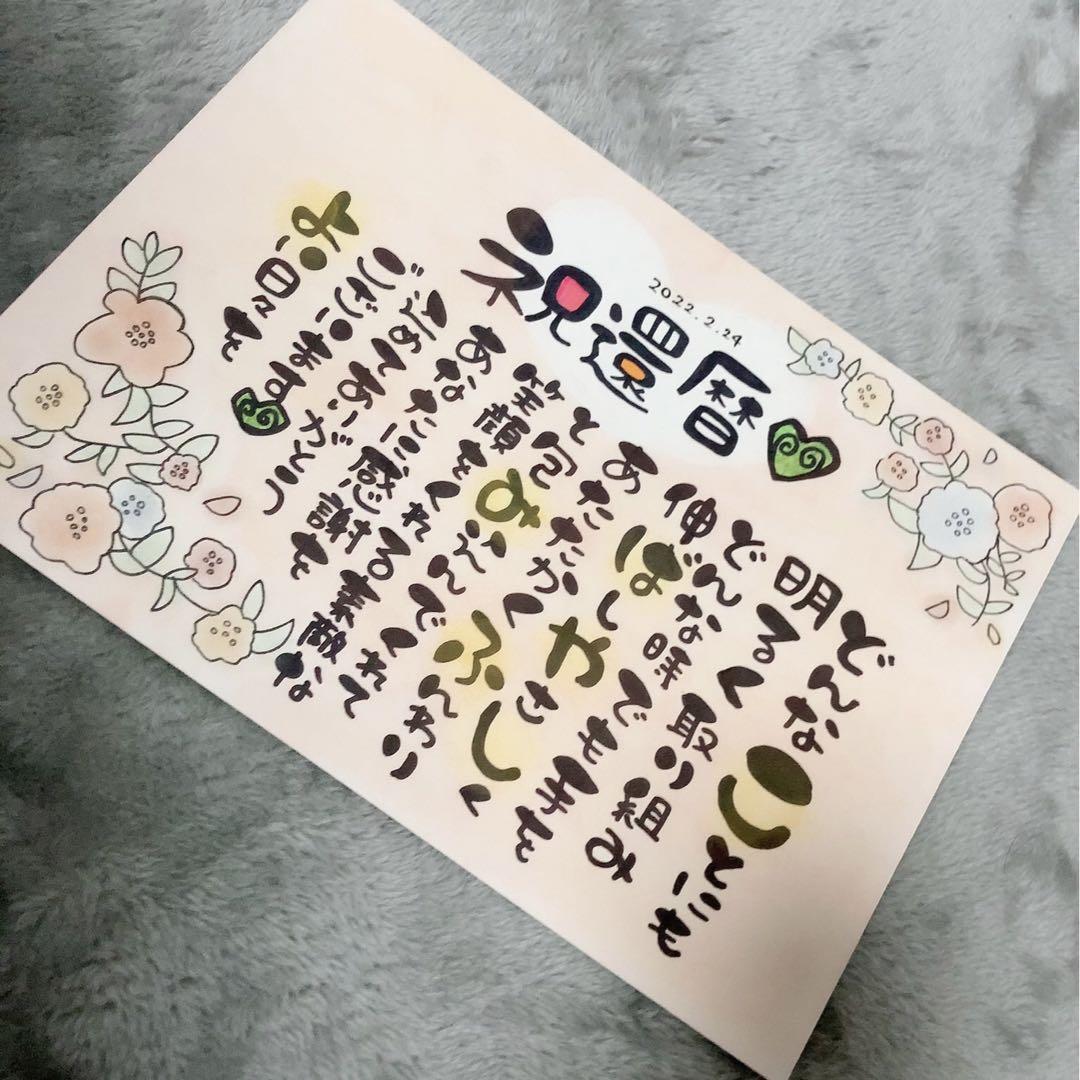 2022.2.24
祝還暦
どんなことにも
明るく取り組み
どんな時でも手を
伸ばしやさしく
あたたかくふんわり
と包みこんでくれて
笑顔をくれる素敵な
あなたに感謝を
込めてありがとう
ございます
よい日々を